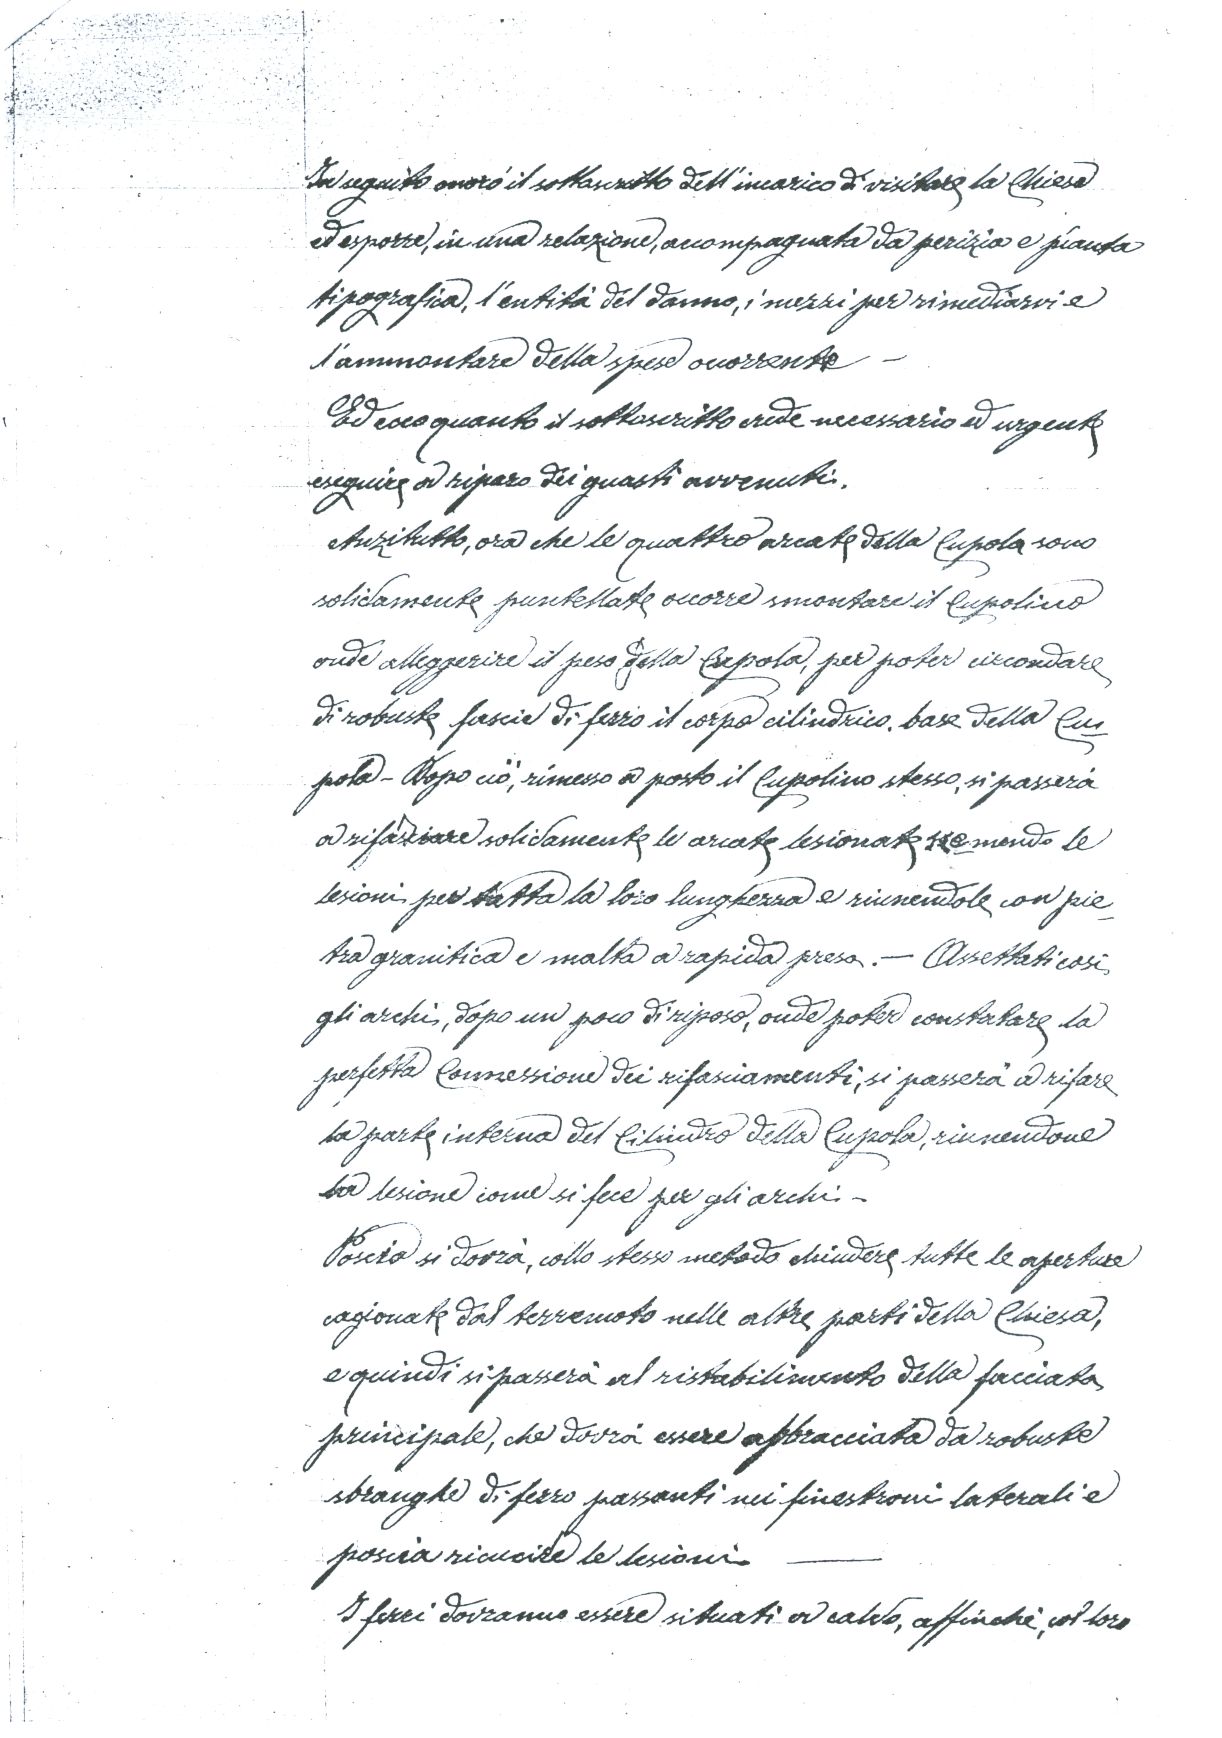 In seguito onorò il sottoscritto dell'incarico di visitare la Chiesa
ed esporre, in una relazione, accompagnata da perizia e pianta
tipografica, l'entità del danno, i mezzi per rimediarvi e
l'ammontare della spesa occorrente —
Ed ecco quanto il sottoscritto crede necessario ed urgente
eseguire a riparo dei guasti avvenuti.
Anzitutto, ora che le quattro arcate della Cupola sono
solidamente puntellate occorre smontare il Cupolino
onde alleggerire il peso della Cupola, per poter circondare
di robuste fascie di ferro il corpo cilindrico, base della Cu-
pola - Dopo ciò, rimesso a posto il Cupolino stesso, si passerà
a rifasciare solidamente le arcate lesionate mendo le
lesioni per tutta la loro lunghezza e riunendole con pie-
tra granitica e malta a rapida presa. — Assettati così
gli archi, dopo un poco di riposo, onde poter constatare la
perfetta Connessione dei rifasciamenti, si passerà a rifare
la parte interna del Cilindro della Cupola, riunendone
la lesione come si fece per gli archi -
Poscia si dovrà, collo stesso metodo chiudere tutte le aperture
cagionate dal terremoto nelle altre parti della Chiesa,
e quindi si passerà al ristabilimento della facciata
principale, che dovrà essere abbracciata da robuste
spranghe di ferro passanti nei finestroni laterali e
poscia ricucire le lesioni —
I ferri dovranno essere situati a caldo, affinchè, col loro